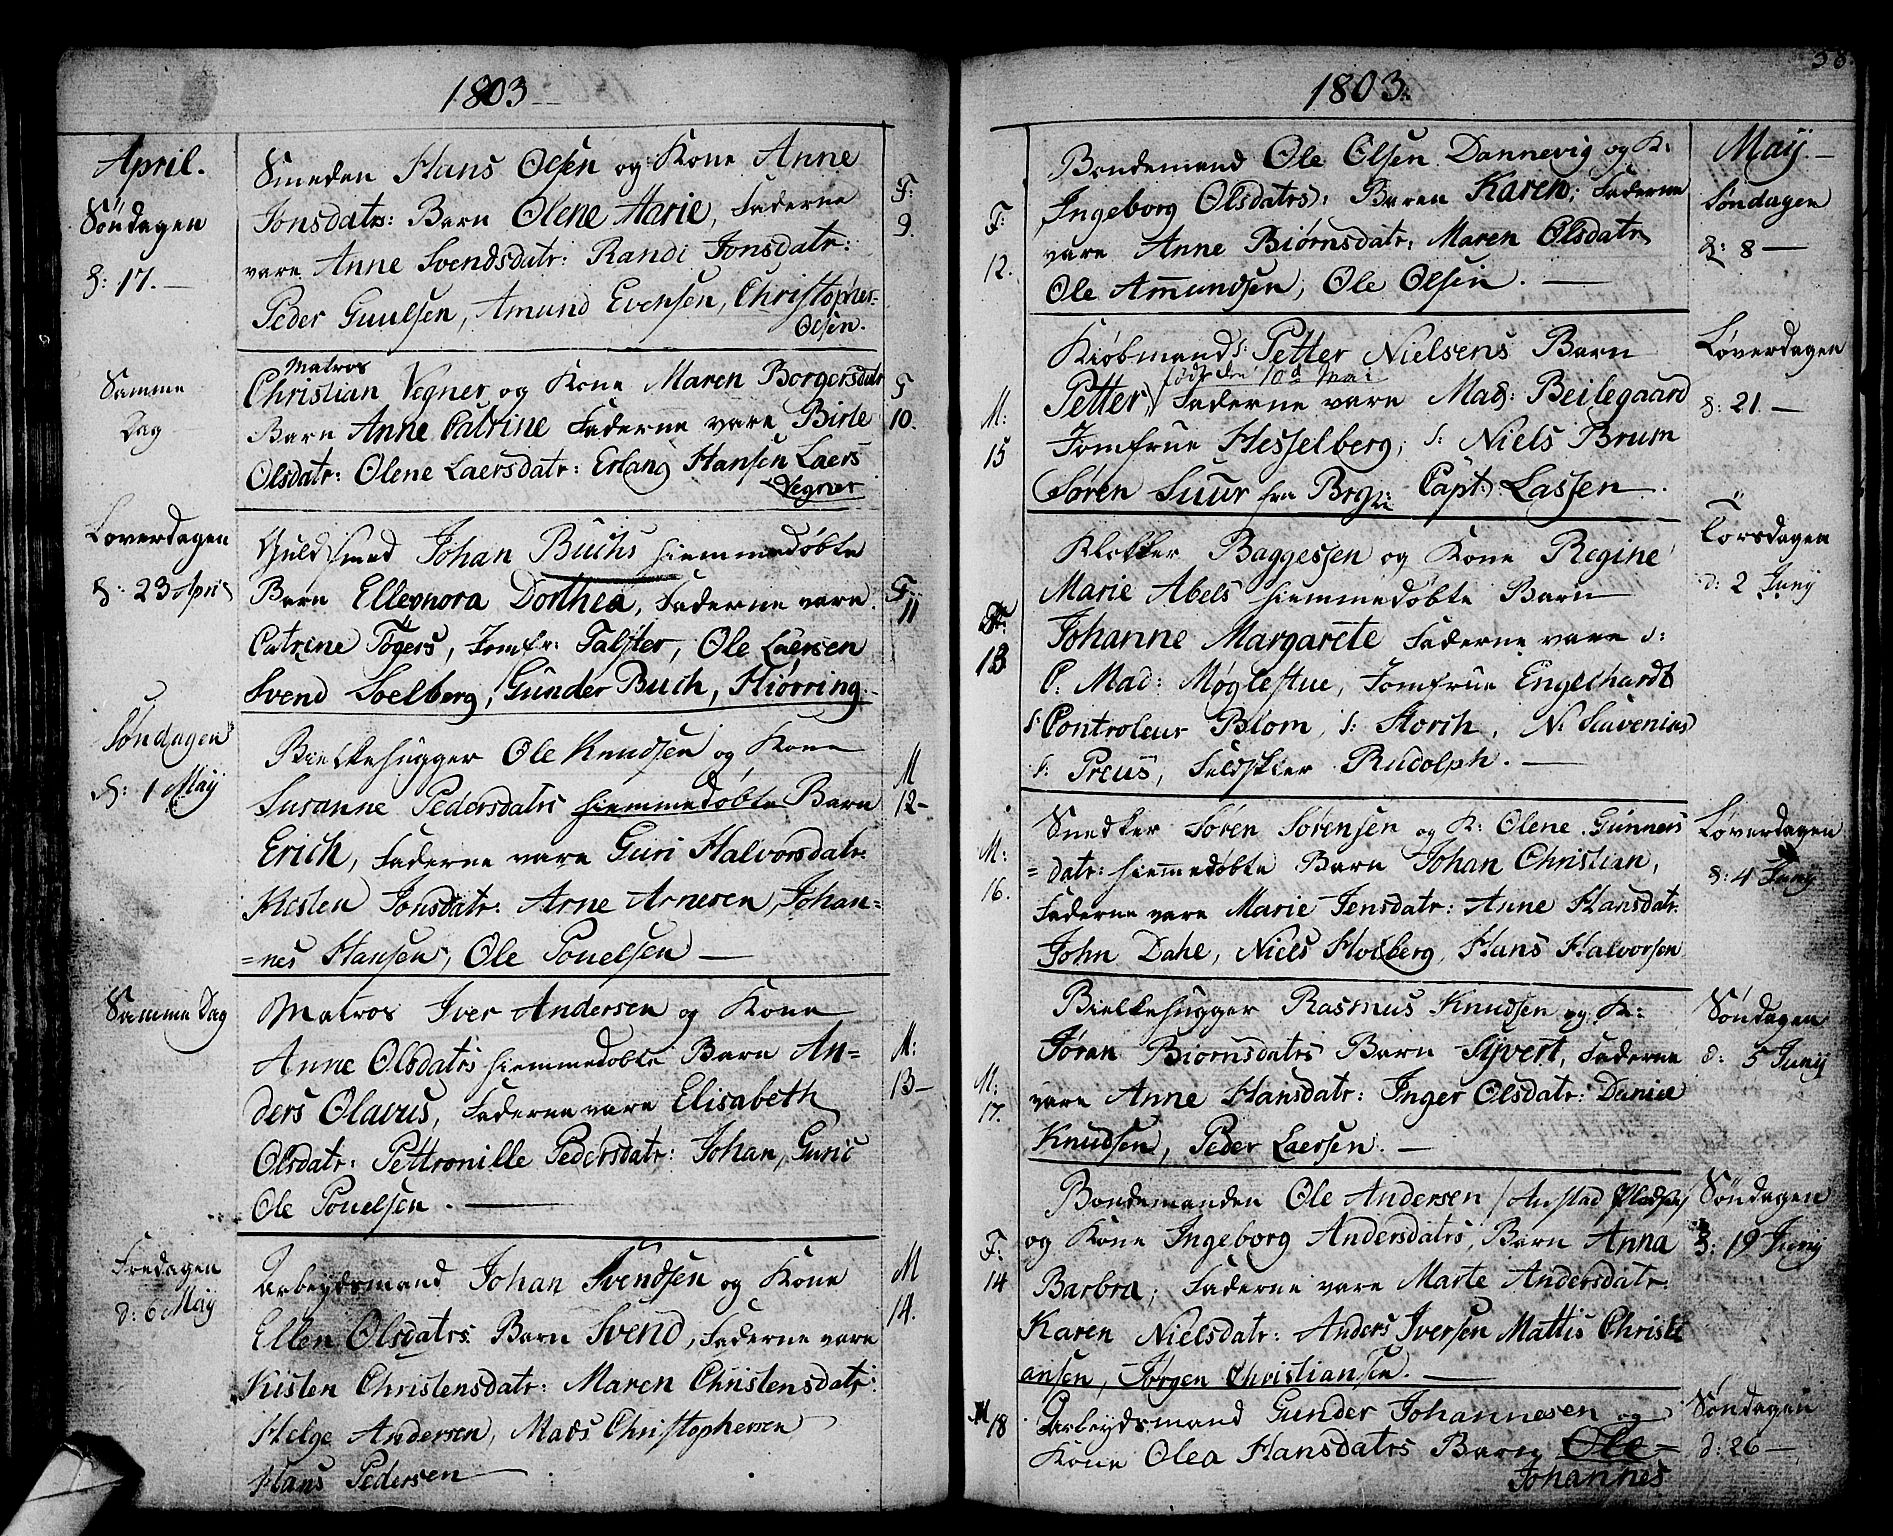 1803
April.
Søndagen
d: 17. —
Smeden Hans Olsen og Kone Anne
Jonsdatr: Barn Olene Marie, Fadderne
vare Anne Svendsdatr: Randi Jonsdatr:
Peder Guulsen, Amund Evensen, Christopher
Olsen.
F:
9.
Samme
Dag
Matros
Christian Vegner og Kone Maren Borgersdatr
Barn Anne Catrine Fadderne vare Birle
Olsdatr: Olene Laersdatr: Erland Hansen Laers
Vegner
F
10.
Løverdagen
d: 23 April
Guldsmed Johan Buchs hiemmedøbte
Barn Elleonora Dorthea, Fadderne vare
Catrine Tøgers, Jomfr: Falster, Ole Laersen
Svend Soelberg, Gunder Buch, Hiørring.
F:
11
Søndagen
d: 1 Maij
Bielkehugger Ole Knudsen og Kone
Susanne Pedersdatrs hiemmedøbte Barn
Erich, Fadderne vare Guri Halvorsdatr:
Kisten Jonsdatr: Arne Arnesen, Johan=
=nes Hansen, Ole Pouelsen —
M
12-
Samme Dag
Matros Iver Andersen og Kone
Anne Olsdatrs hiemmedøbte Barn An=
ders Olavus, Fadderne vare Elisabeth
Olsdatr: Pettronille Pedersdatr: Johan, Guric
Ole Pouelsen. —
M:
13-
Fredagen
d: 6 Maij
Arbeydsmand Johan Svendsen og Kone
Ellen Olsdatrs Barn Svend, Fadderne vare
Kisten Christensdatr: Maren Christensdatr:
Helge Andersen, Mads Christophersen
Hans Pedersen —
M
14.
38
1803.
F:
12.
Bondemand Ole Olsen Dannevig og K:
Ingeborg Olsdatrs: Barn Karen, Fadderne
vare Anne Biørnsdatr: Maren Olsdatr
Ole Amundsen, Ole Olsen. —
Maij. —
Søndagen
d: 8 —
M:
15
Kiøbmand S: Petter Nielsens Barn
født den 10d Mai
Petter, Fadderne vare Mad: Beilegaard
Jomfrue Hesselberg, S: Niels Brum
Søren Suur fra Brg: Capt: Lassen.
Løverdagen
d: 21. —
13
Klokker Baggessen og Kone Regine
Marie Abels hiemmedøbte Barn
Johanne Margarete Fadderne vare
Mad: Møglestue, Jomfrue Engelhardt
S: Controleur Blom, S: Storch, N: Stavenias
S: Preus, Feldskier Rudolph. —
Torsdagen
d: 2 Junij
M:
16.
Snedker Søren Sørensen og K: Olene Gunners
=datr: hiemmedøbte Barn Johan Christian,
Fadderne vare Marie Jensdatr: Anne Hansdatr:
John Dahl, Niels Holberg, Hans Halvorsen
Løverdagen
d: 4 Junij
M:
17.
Bielkehugger Rasmus Knudsen og K:
Jøran Biørnsdatrs Barn Sijvert, Fadderne
vare Anne Hansdatr: Inger Olsdatr: Daniel
Knudsen, Peder Laersen. —
Søndagen
d: 5 Junij
F:
14
Bondemanden Ole Andersen
og Kone Ingeborg Andersdatrs, Barn Anna
Barbra, Fadderne vare Marte Andersdatr
Karen Nielsdatr: Anders Iversen Mattis Christi
ansen, Jørgen Christiansen. —
Søndagen
d: 19 Junij
M
18
Arbeydsmand Gunder Johannesen og
Kone Olea Hansdatrs Barn Ole
Johannes
Søndagen
d: 26 —